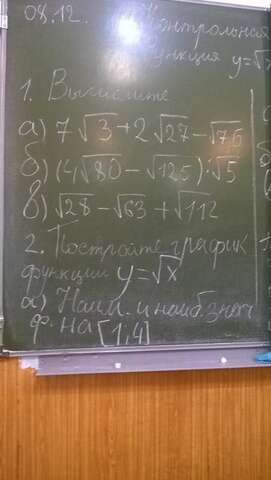 08.12. Контрольная
функция y=√x
1. Вычислите
а) 7√3+2√27-√75
б) (4√80-√125)·√5
в) √28-√63+√112
2. Постройте график
функции y=√x
а) Наим. и наиб. знач
ф. на [1,4]